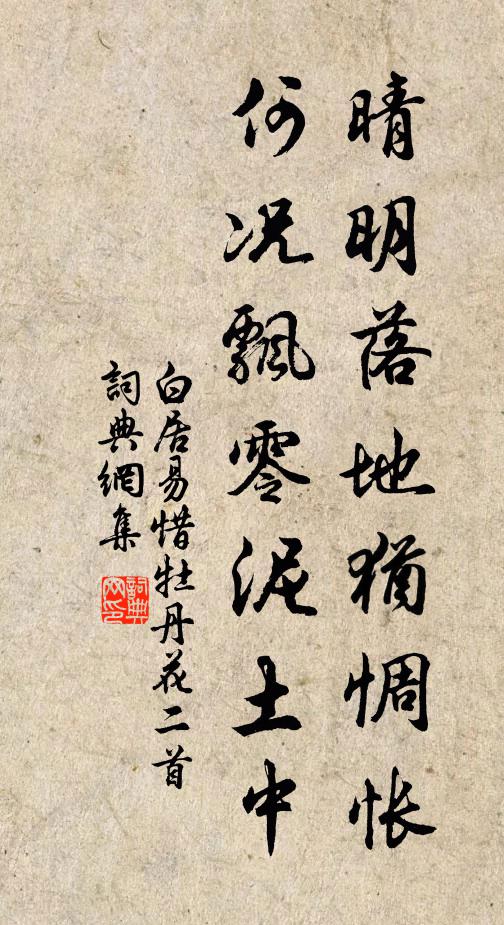 晴明落地猶惆怅
何况飄零泥土中
白居易惜牡丹花二首
詞典網集
詞典網印